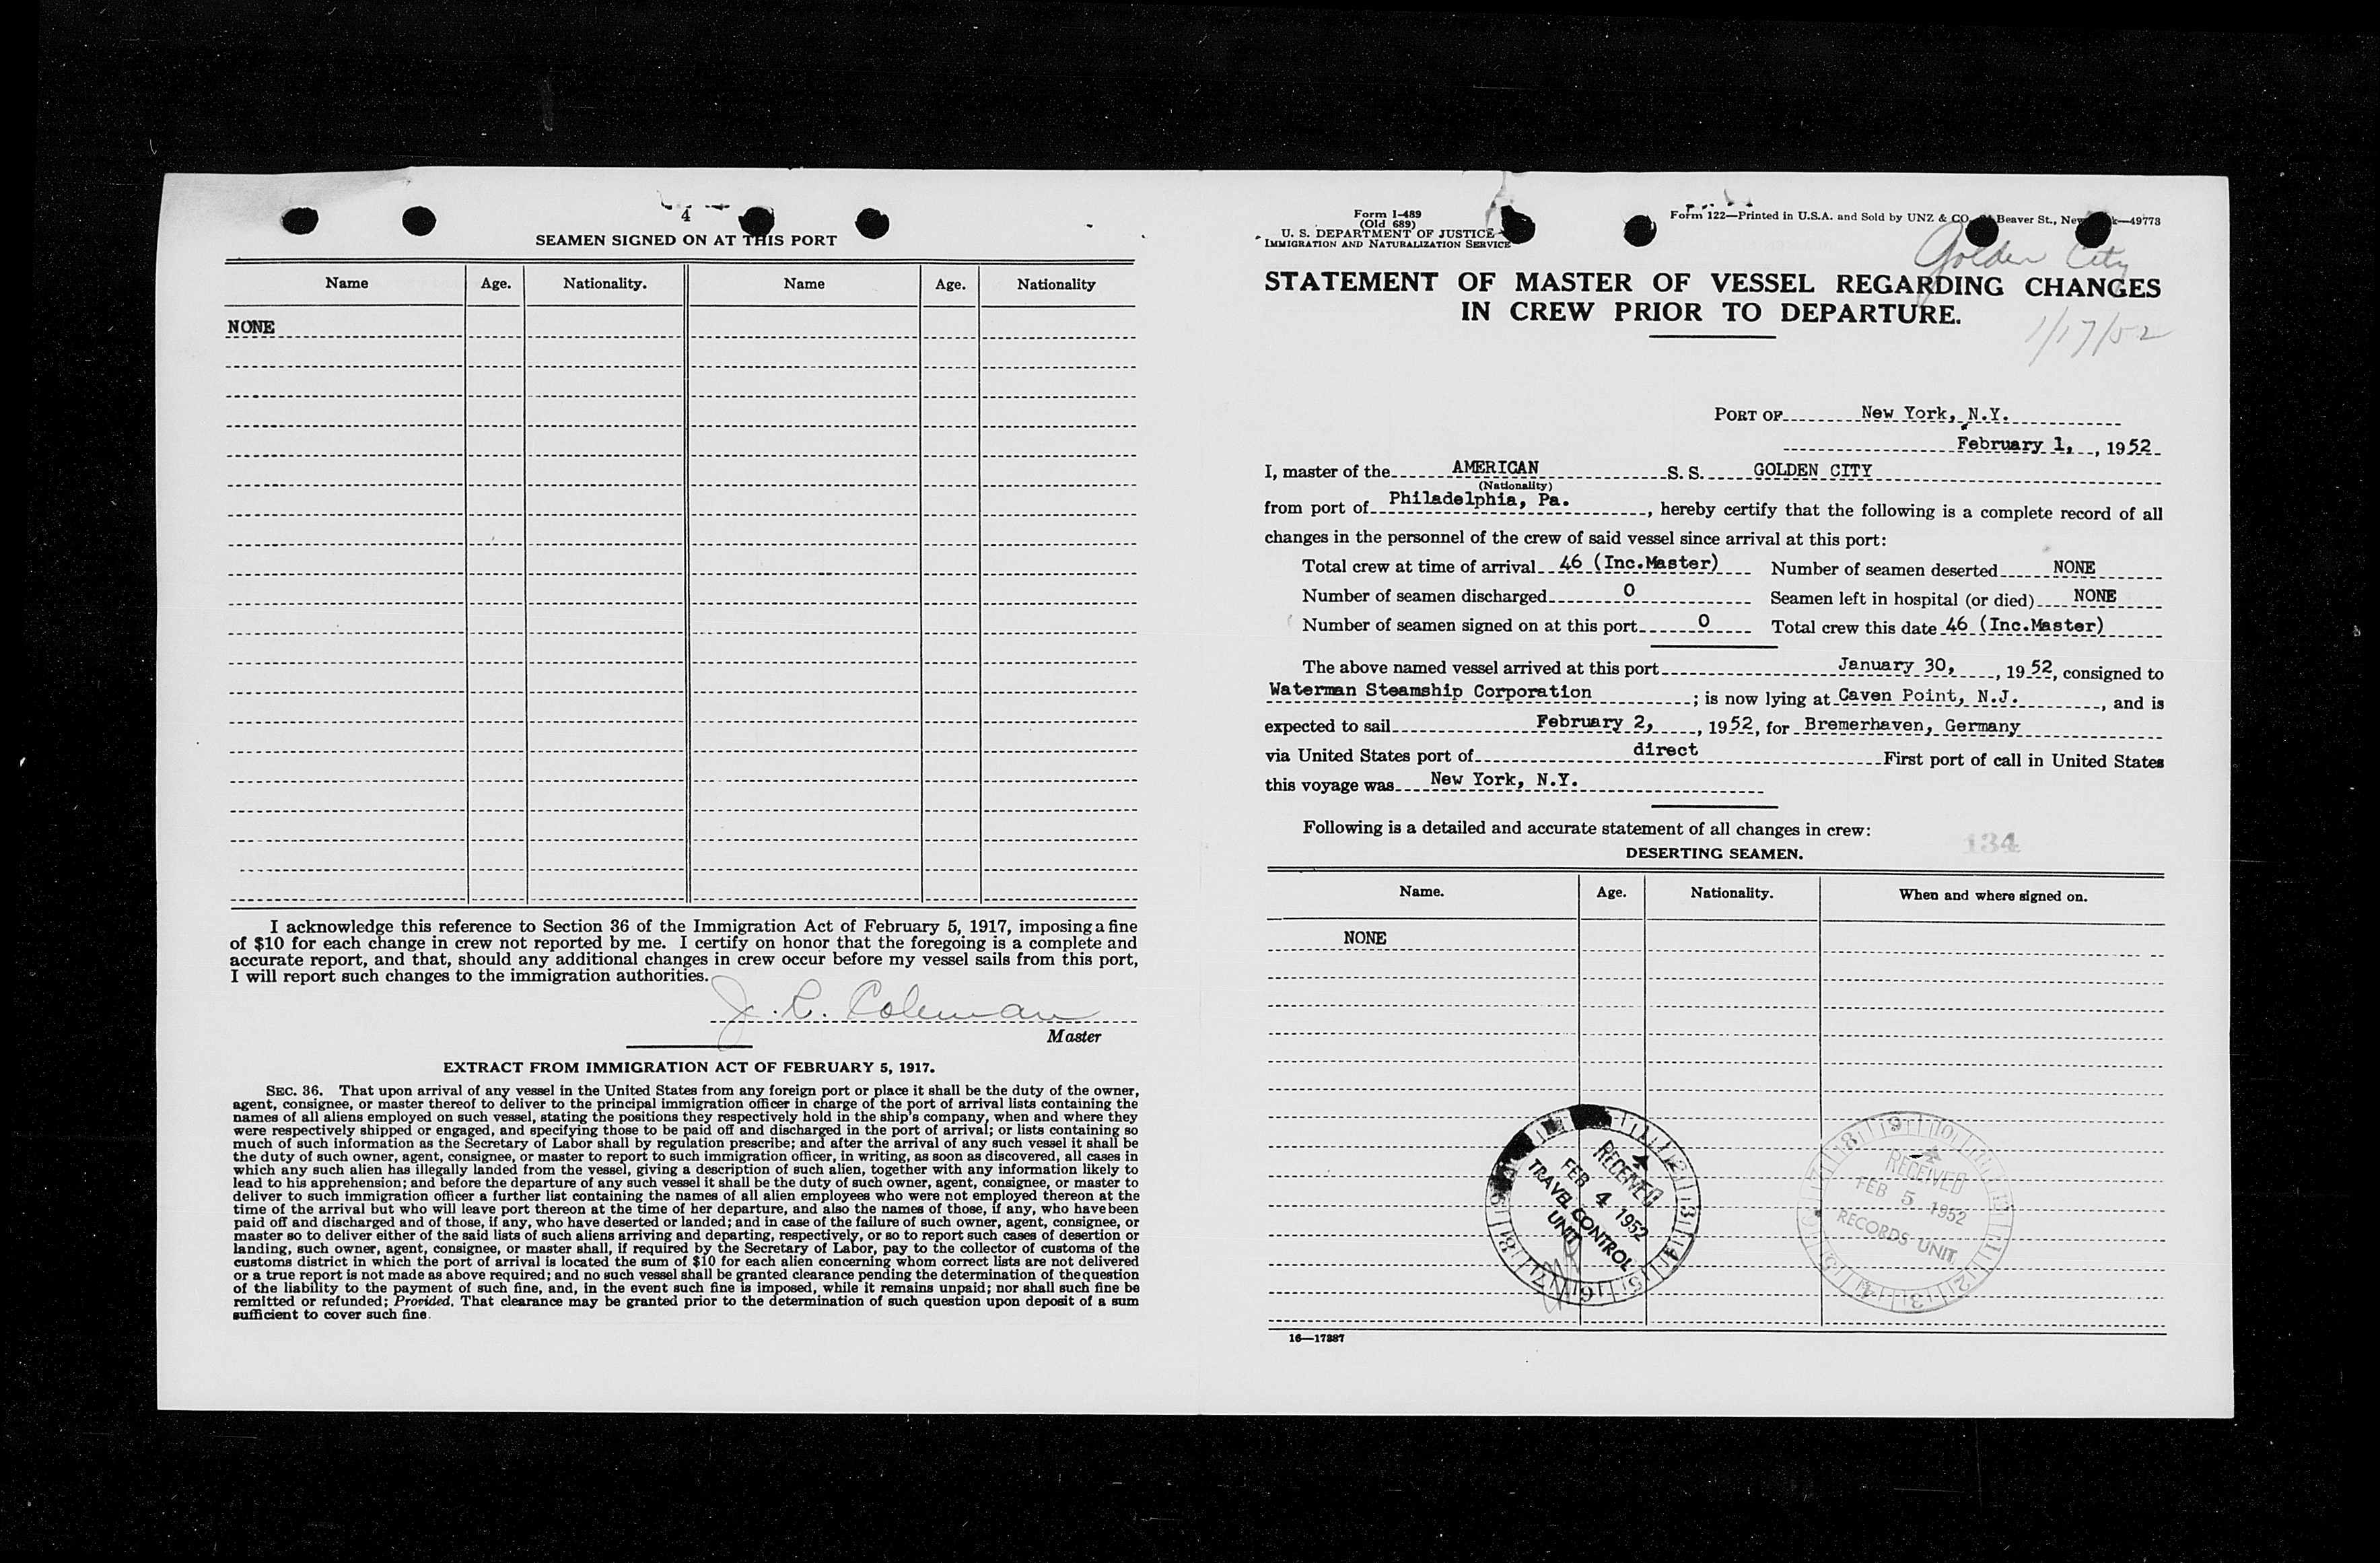 4
SEAMEN SIGNED ON AT THIS PORT
Name Age. Nationality. Name Age. Nationality
NONE
I acknowledge this reference to Section 36 of the Immigration Act of February 5, 1917, imposing a fine
of $10 for each change in crew not reported by me. I certify on honor that the foregoing is a complete and
accurate report, and that, should any additional changes in crew occur before my vessel sails from this port,
I will report such changes to the immigration authorities.
J. R. Coleman
Master
EXTRACT FROM IMMIGRATION ACT OF FEBRUARY 5, 1917.
SEC. 36. That upon arrival of any vessel in the United States from any foreign port or place it shall be the duty of the owner,
agent, consignee, or master thereof to deliver to the principal immigration officer in charge of the port of arrival lists containing the
names of all aliens employed on such vessel, stating the positions they respectively hold in the ship's company, when and where they
were respectively shipped or engaged, and specifying those to be paid off and discharged in the port of arrival; or lists containing so
much of such information as the Secretary of Labor shall by regulation prescribe; and after the arrival of any such vessel it shall be
the duty of such owner, agent, consignee, or master to report to such immigration officer, in writing, as soon as discovered, all cases in
which any such alien has illegally landed from the vessel, giving a description of such alien, together with any information likely to
lead to his apprehension; and before the departure of any such vessel it shall be the duty of such owner, agent, consignee, or master to
deliver to such immigration officer a further list containing the names of all alien employees who were not employed thereon at the
time of the arrival but who will leave port thereon at the time of her departure, and also the names of those, if any, who have been
paid off and discharged and of those, if any, who have deserted or landed; and in case of the failure of such owner, agent, consignee, or
master so to deliver either of the said lists of such aliens arriving and departing, respectively, or so to report such cases of desertion or
landing, such owner, agent, consignee, or master shall, if required by the Secretary of Labor, pay to the collector of customs of the
customs district in which the port of arrival is located the sum of $10 for each alien concerning whom correct lists are not delivered
or a true report is not made as above required; and no such vessel shall be granted clearance pending the determination of the question
of the liability to the payment of such fine, and, in the event such fine is imposed, while it remains unpaid; nor shall such fine be
remitted or refunded; Provided, That clearance may be granted prior to the determination of such question upon deposit of a sum
sufficient to cover such fine.
Form I-489
(Old 689)
U. S. DEPARTMENT OF JUSTICE
IMMIGRATION AND NATURALIZATION SERVICE
Form 122—Printed in U.S.A. and Sold by UNZ & CO. Beaver St., New —49773
Golden City
STATEMENT OF MASTER OF VESSEL REGARDING CHANGES
IN CREW PRIOR TO DEPARTURE.
1/17/52
PORT OF New York, N.Y.
February 1, , 1952
I, master of the AMERICAN S. S. GOLDEN CITY
(Nationality)
from port of Philadelphia, Pa. , hereby certify that the following is a complete record of all
changes in the personnel of the crew of said vessel since arrival at this port:
Total crew at time of arrival 46 (Inc.Master) Number of seamen deserted NONE
Number of seamen discharged 0 Seamen left in hospital (or died) NONE
Number of seamen signed on at this port 0 Total crew this date 46 (Inc.Master)
The above named vessel arrived at this port January 30, , 1952, consigned to
Waterman Steamship Corporation ; is now lying at Caven Point, N.J. , and is
expected to sail February 2, , 1952, for Bremerhaven, Germany
via United States port of direct First port of call in United States
this voyage was New York, N.Y.
Following is a detailed and accurate statement of all changes in crew:
134
DESERTING SEAMEN.
Name. Age. Nationality. When and where signed on.
NONE
RECEIVED
FEB 4 1952
TRAVEL CONTROL
UNIT
RECEIVED
FEB 5 1952
RECORDS UNIT
16—17387